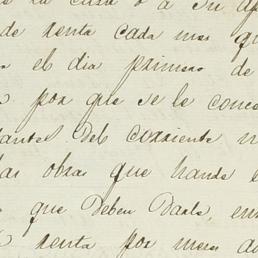 la casa o a su
de renta cada mes qu
el dia primero de
por que se le conce
dantes del corriente
las obras que hande
que deben Darle, en
renta por meses a